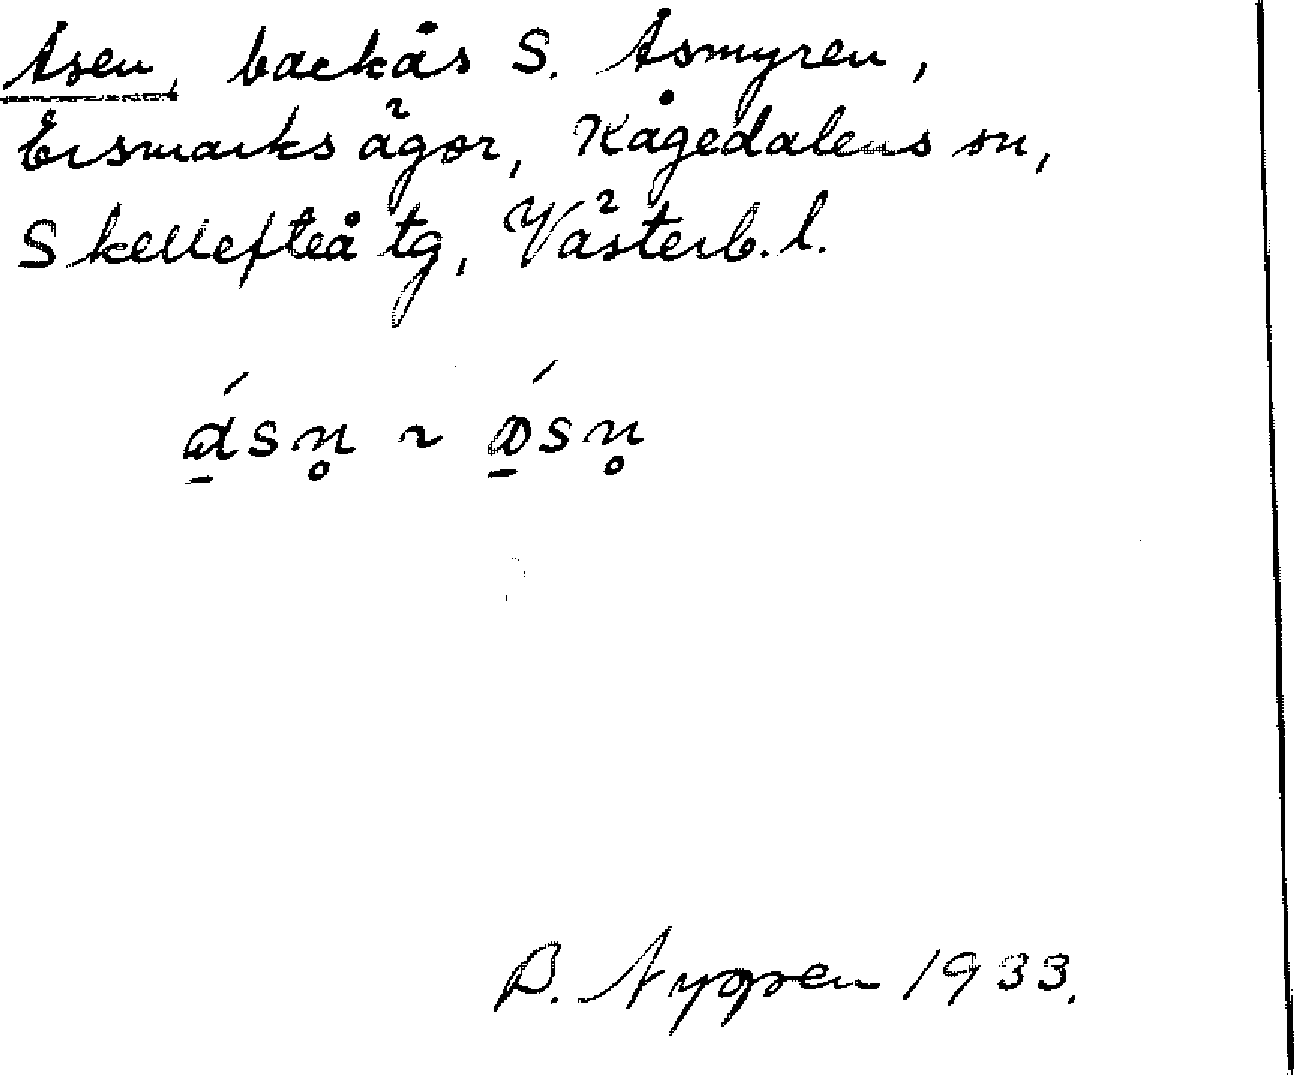 Åsen, backås S. Åsmyren,
Ersmarks ägor, Kågedalens sn,
Skellefteå tg, Västerb. l.
B. Nygren 1933.